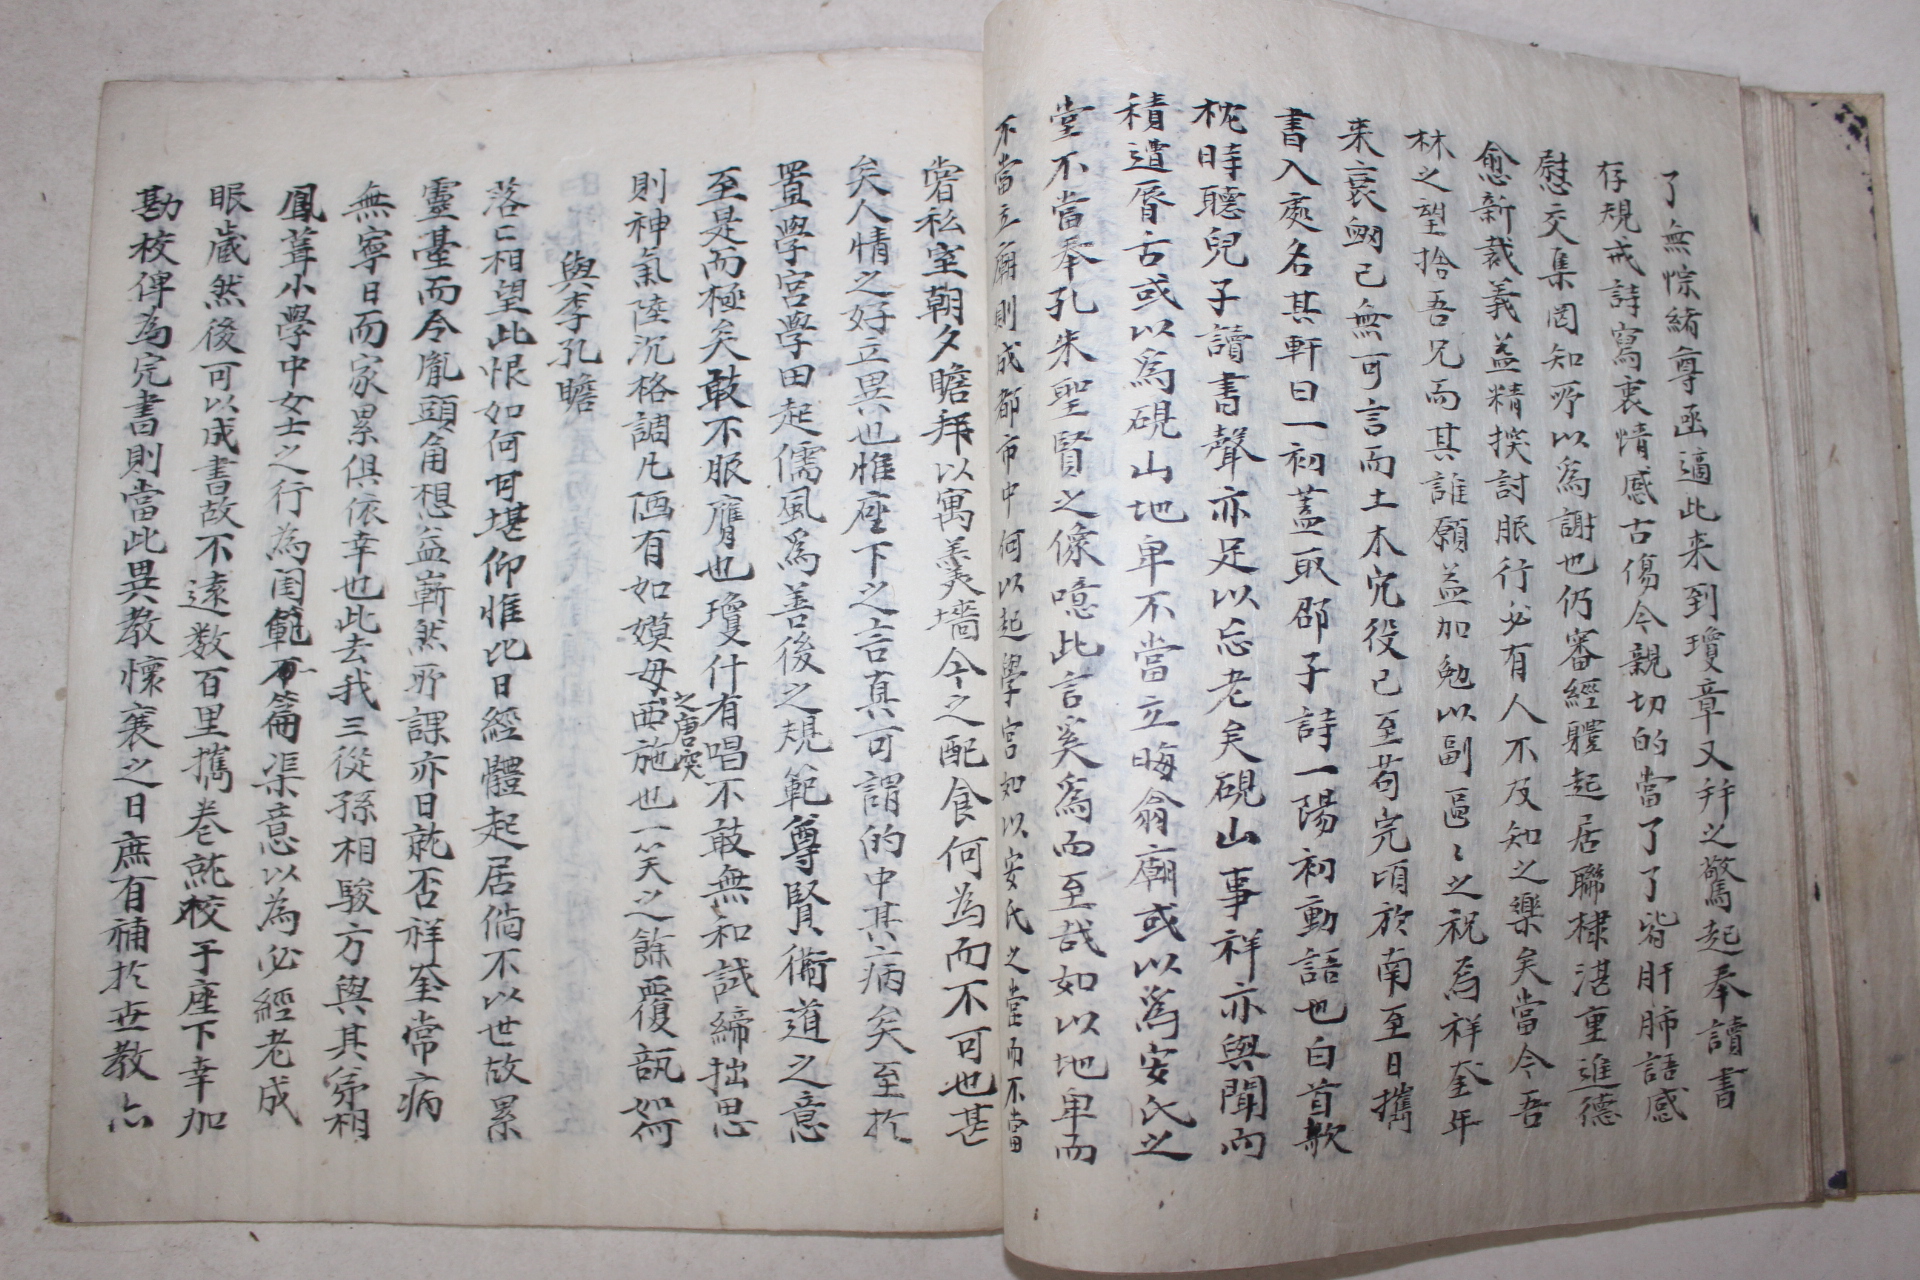 了無悰緖尊函適此来到瓊章又幷之驚起奉讀書
存規戒詩寫衷情感古傷今親切的當了了皆肝肺語感
慰交集罔知所以為謝也仍審經體起居聯棣湛重進德
愈新裁義益精探討脈行必有人不及知之樂矣當今吾
林之望捨吾兄而其誰願益加勉以副區〻之祝焉祥奎年
来衰衂已無可言而土木宂役已至苟完頃於南至日攜
書入處名其軒曰一初蓋取邵子詩一陽初動語也白首欹
枕時聽兒子讀書聲亦足以忘老矣硯山事祥亦與聞而
積遣唇舌或以爲硯山地卑不當立晦翁廟或以爲安氏之
堂不當奉孔朱聖賢之像噫此言奚爲而至哉如以地卑而
不當立廟則成都市中何以起學宮如以安氏之堂而不當
甞私室朝夕瞻拜以寓羹墻今之配食何為而不可也甚
矣人情之好立異也惟座下之言真可謂的中其病矣至於
置學宮學田起儒風爲善後之規範尊賢衛道之意
至是而極矣敢不服膺也瓊什有唱不敢無和試締拙思
則神氣陸沉格調凡陋有如嫫母之唐突西施也一笑之餘覆瓿如何
與李孔瞻
落〻相望此恨如何可堪仰惟比日經體起居倘不以世故累
靈臺而令胤頭角想益嶄然所課亦日就否祥奎常病
無寧日而家累俱依幸也此去我三從孫相駿方與其弟相
鳳葺小學中女士之行為閨範一篇渠意以為必經老成
眼歲然後可以成書故不遠数百里攜卷就校于座下幸加
勘校俾為完書則當此異教懷襄之日庶有補於世教亦